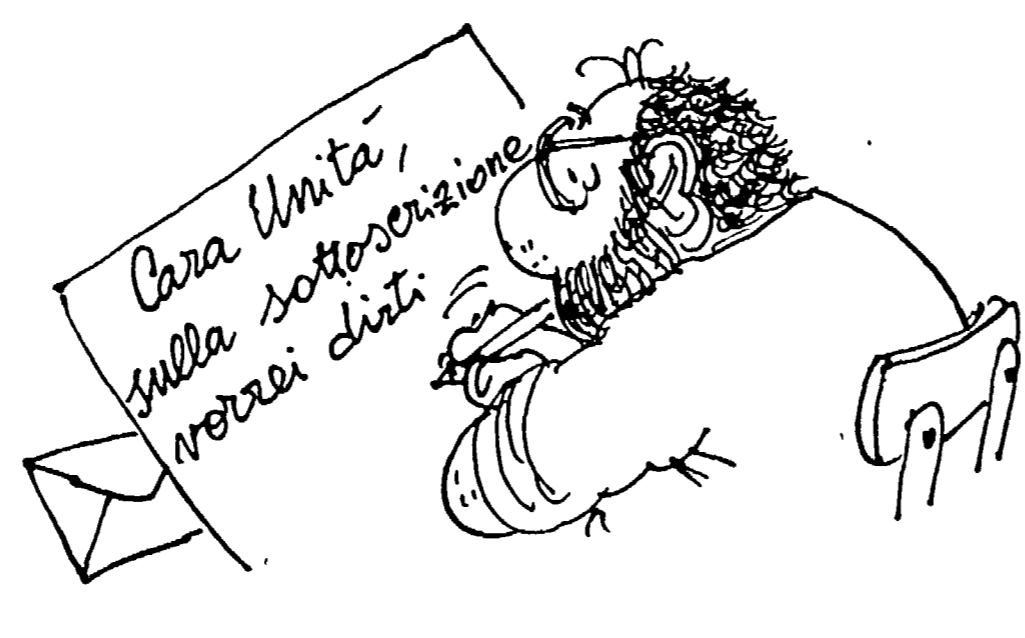 Cara Unità,
sulla sottoscrizione
vorrei dirti